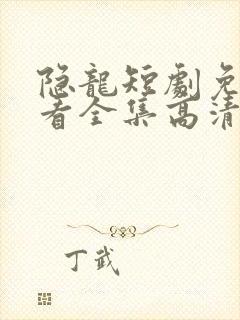 隐龍短劇免
看全集高清
丁武